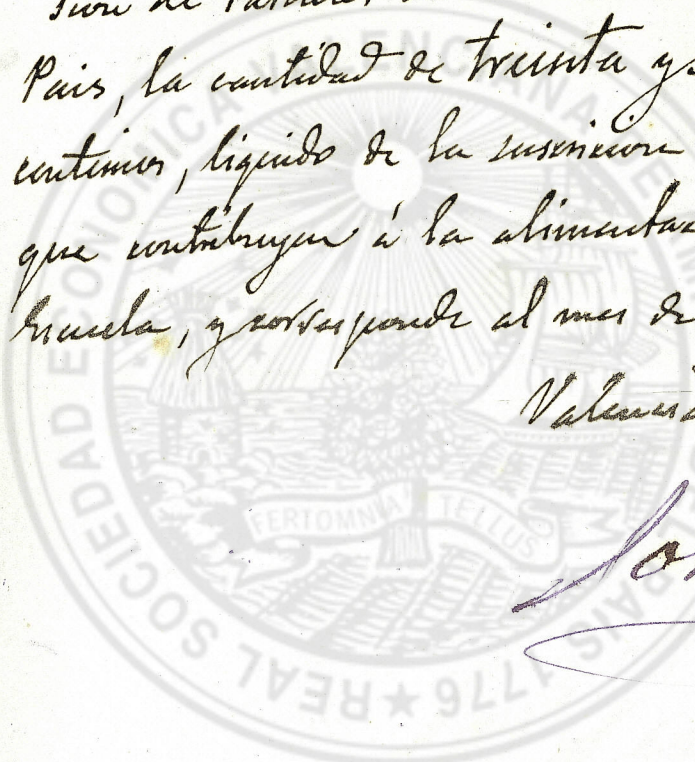 de
Pais, la cantidad de treinta y
centimos, liquido de la suscricion
que contribuyen á la alimentac
Escuela, y corresponde al mes de
Valencia
REAL SOCIEDAD ECONOMICA VALENCIANA DE PAIS 1776
FERT OMNIA TELLUS